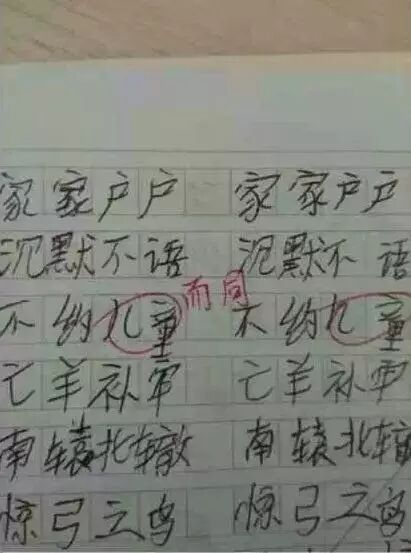 家家户户 家家户户
沉默不语 沉默不语
不约儿童 而同 不约儿童
亡羊补牢 亡羊补牢
南辕北辙 南辕北辙
惊弓之鸟 惊弓之鸟